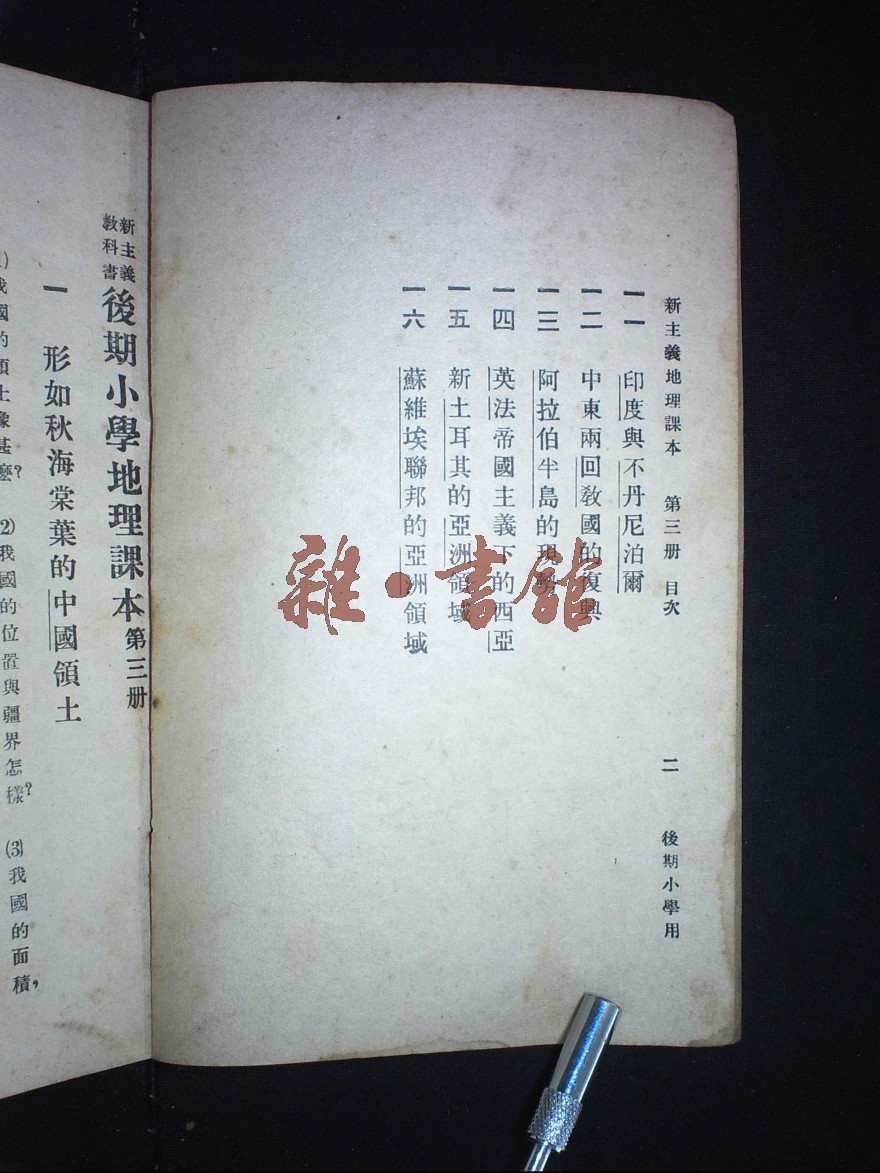 新主義地理課本 第三册 目次 二 後期小學用
一一 印度與不丹尼泊爾
一二 中東兩回敎國的復興
一三 阿拉伯半島的現勢
一四 英法帝國主義下的西亞
一五 新土耳其的亞洲領域
一六 蘇維埃聯邦的亞洲領域
雜·書館
新主義
敎科書
後期小學地理課本第三册
一 形如秋海棠葉的中國領土
(1)我國的領土像甚麼? (2)我國的位置與疆界怎樣? (3)我國的面積,